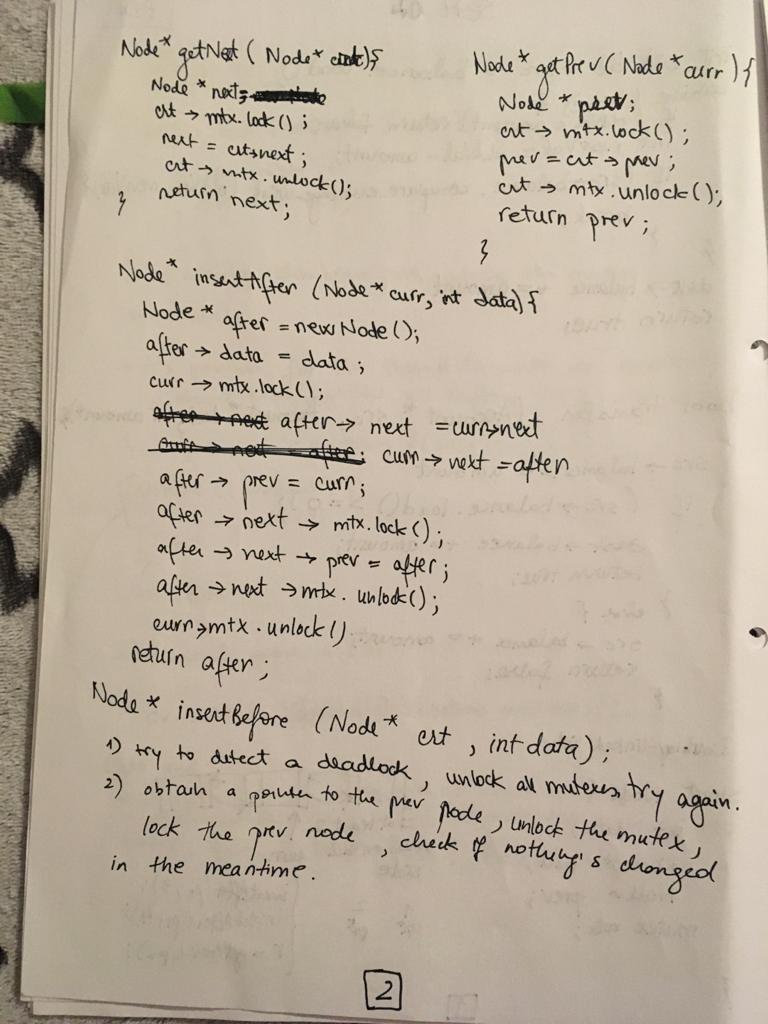 Node* getNext ( Node* crt){
Node * next;
crt → mtx.lock();
next = crt→next;
crt → mtx.unlock();
return next;
}
Node* getPrev (Node *curr) {
Node * prev;
crt → mtx.lock();
prev = crt → prev;
crt → mtx.unlock();
return prev;
}
Node* insertAfter (Node* curr, int data){
Node * after = new Node();
after → data = data;
curr → mtx.lock();
after → next = curr→next
curr → next = after
after → prev = curr;
after → next → mtx.lock();
after → next → prev = after;
after → next → mtx. unlock();
curr→mtx.unlock()
return after;
Node* insertBefore (Node* crt, int data);
1) try to detect a deadlock, unlock all mutexes, try again.
2) obtain a pointer to the prev node, unlock the mutex,
lock the prev. node, check if nothing's changed
in the meantime.
2